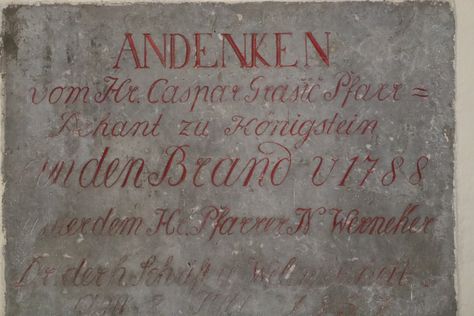 ANDENKEN
vom Hr. Caspar Grasič Pfarr=
Dechant zu Königstein
an den Brand v 1788
unter dem Hr. Pfarrer N Werneker
Dr. der h Schrift